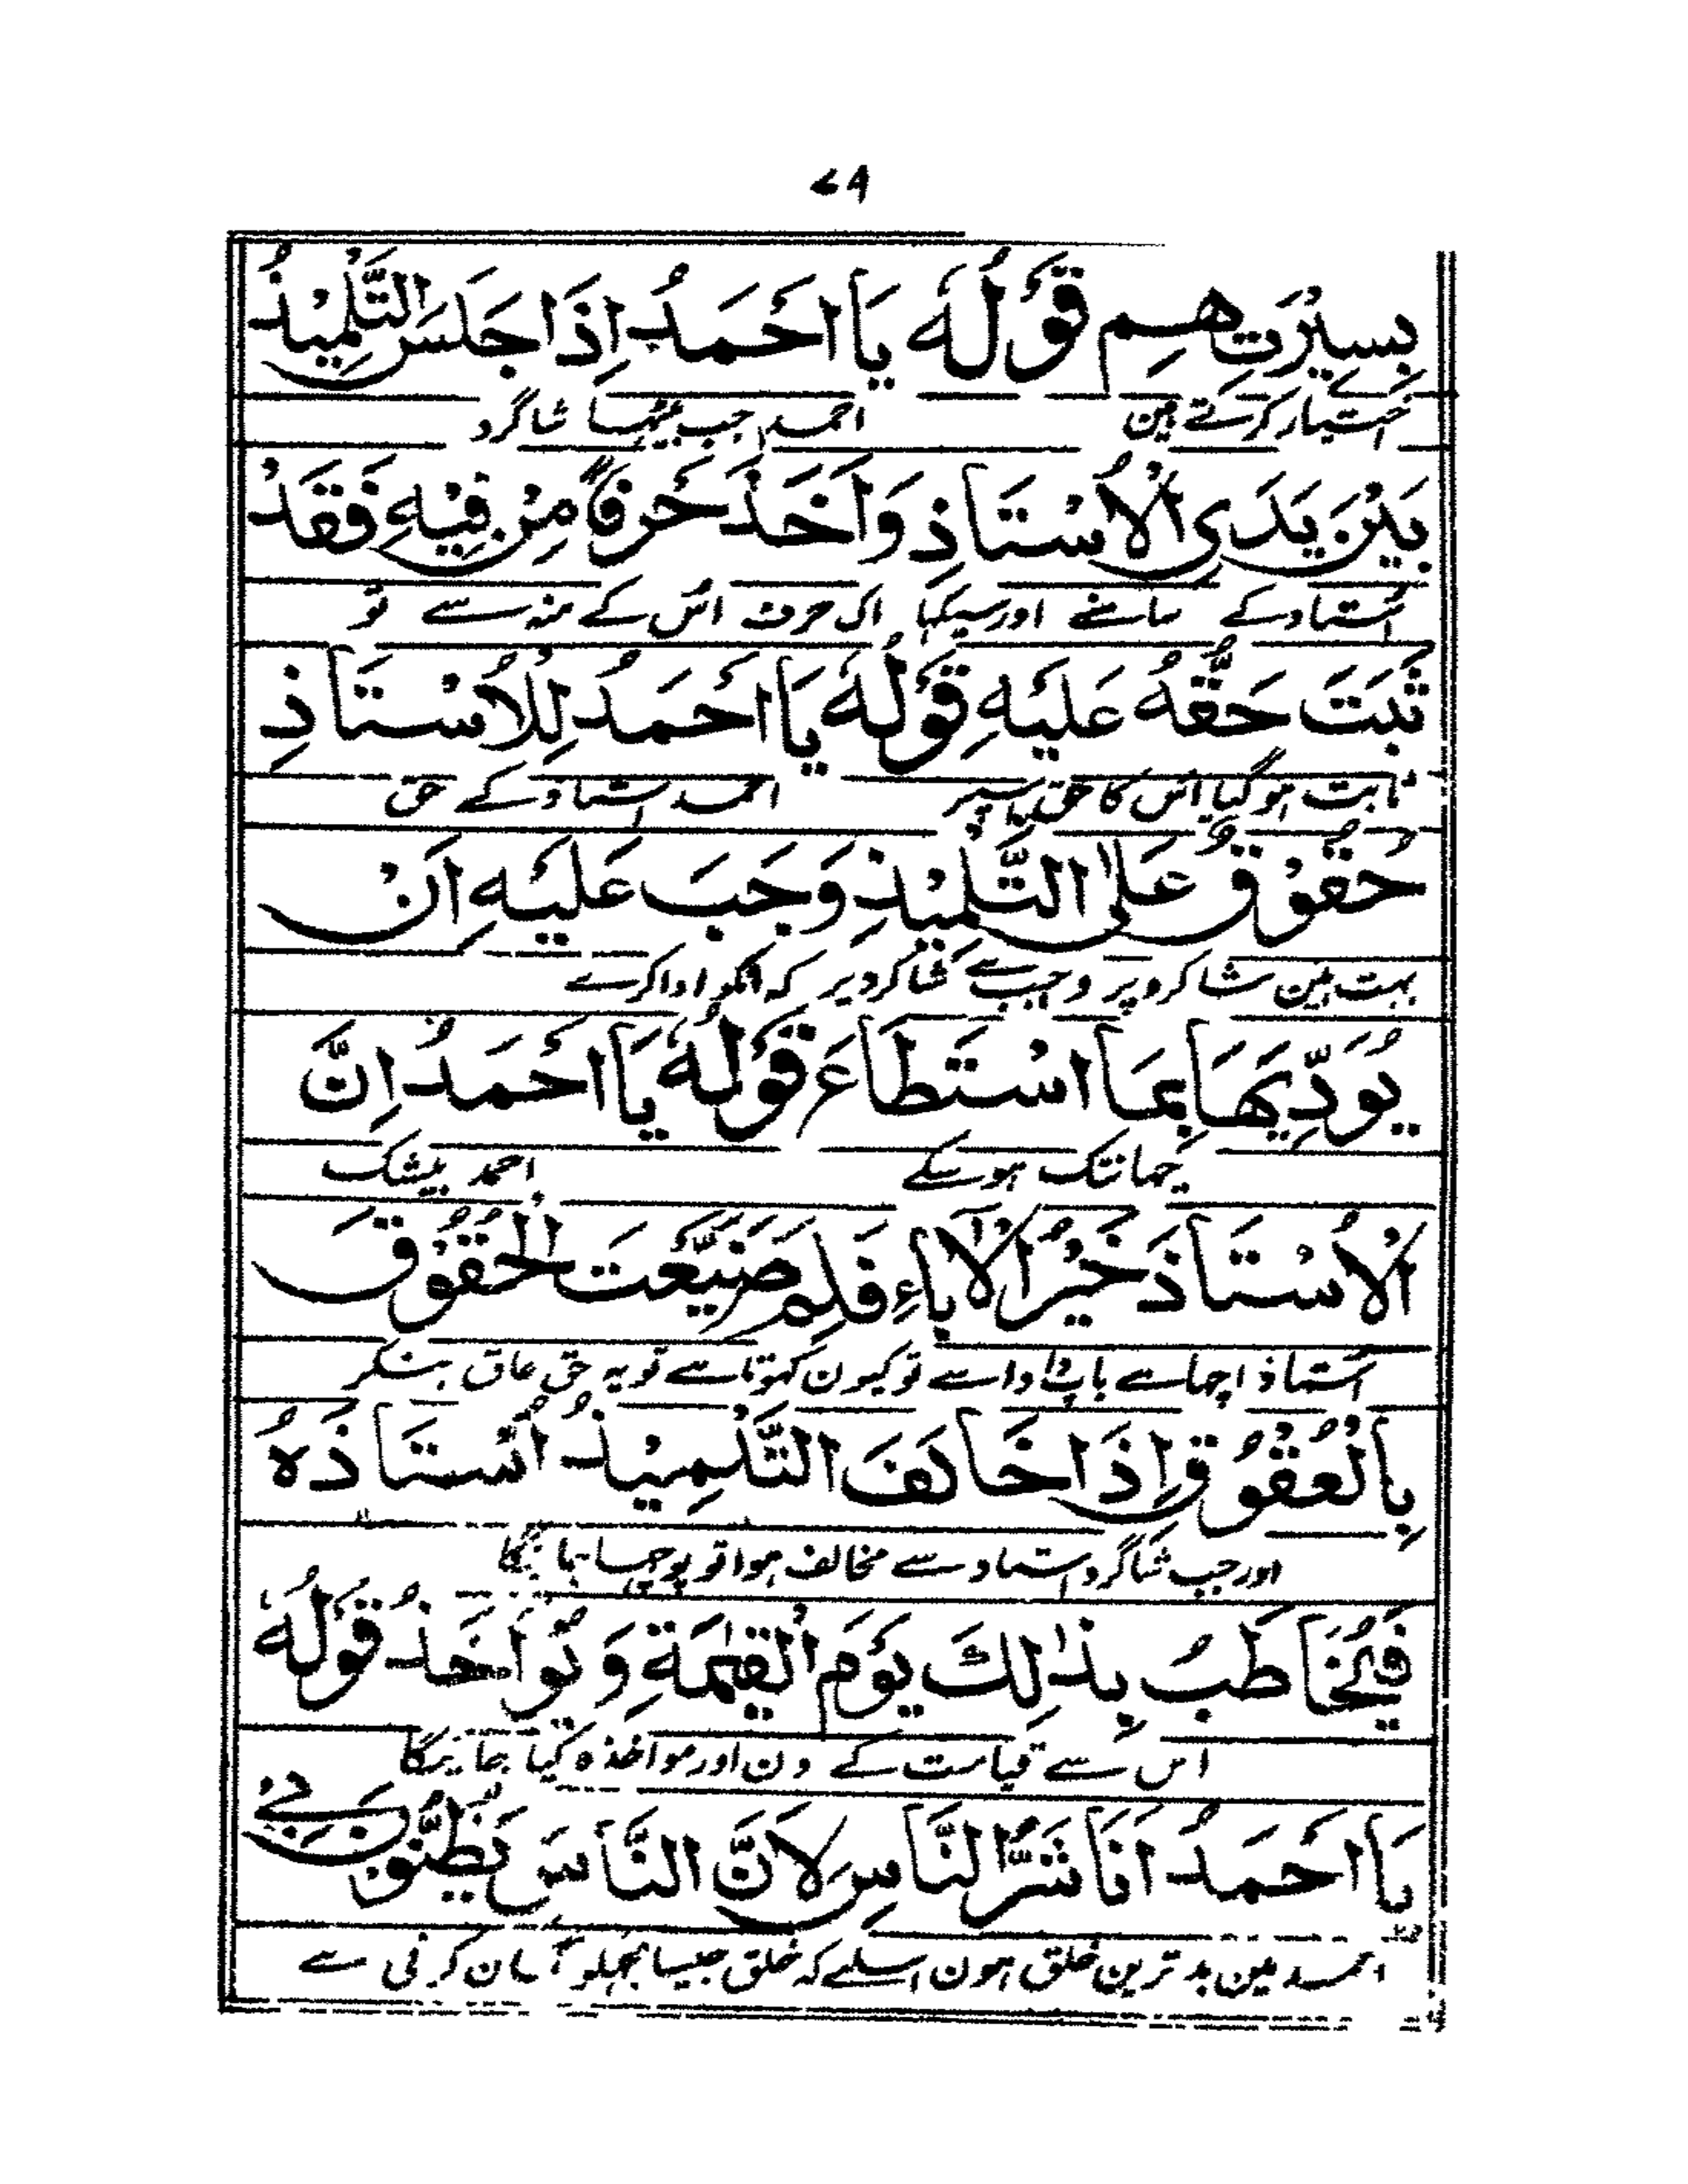 ۷۹
بِسِيْرَتِهِم قَوْلُهٗ يَا اَحْمَدُ اِذَا جَلَسَ التِّلْمِيْذُ
اختیار کرتے ہین احمد جب بیٹھا شاگرد
بَيْنَ يَدَىِ الْاُسْتَاذِ وَاَخَذَ حَرْفًا مِنْ فِيْهِ فَقَدْ
استاد کے سامنے اور سیکہا اک حرف اس کے منہ سے تو
ثَبَتَ حَقُّهُ عَلَيْهِ قَوْلُهٗ يَا اَحْمَدُ لِلْاُسْتَاذِ
ثابت ہو گیا اس کا حق احمد استاد کے حق
حُقُوْقٌ عَلَى التِّلْمِيْذِ وَجَبَ عَلَيْهِ اَنْ
بہت ہین شاکرد پر وجب ہے شاکرد پر کہ انکو ادا کرے
يُوَدِّيَهَا بِمَا اسْتَطَاعَ قَوْلُهٗ يَا اَحْمَدُ اِنَّ
جہانتک ہو سکے احمد بیشک
الْاُسْتَاذَ خَيْرُ الْاٰبَاءِ فَلِمَ ضَيَّعْتَ الْحُقُوْقَ
استاذ اچہا ہے باپ دادا سے تو کیون کہوتا ہے تو یہ حق عاق بنکر
بِالْعُقُوْقِ اِذَا خَالَفَ التِّلْمِيْذُ اُسْتَاذَهُ
اور جب شاگرد استاد سے مخالف ہوا تو پوچہا جائیگا
فَيُخَاطَبُ بِذٰلِكَ يَوْمَ الْقِيٰمَةِ وَيُوَاخَذُ قَوْلُهٗ
اس سے قیامت کے دن اور مواخذہ کیا جائیگا
يَا اَحْمَدُ اَنَا شَرُّ النَّاسِ لِاَنَّ النَّاسَ يَظُنُّوْنَ بِىْ
احمد مین بد ترین خلق ہون اسلیے کہ خلق جیسا مجہکو گمان کرتی ہے